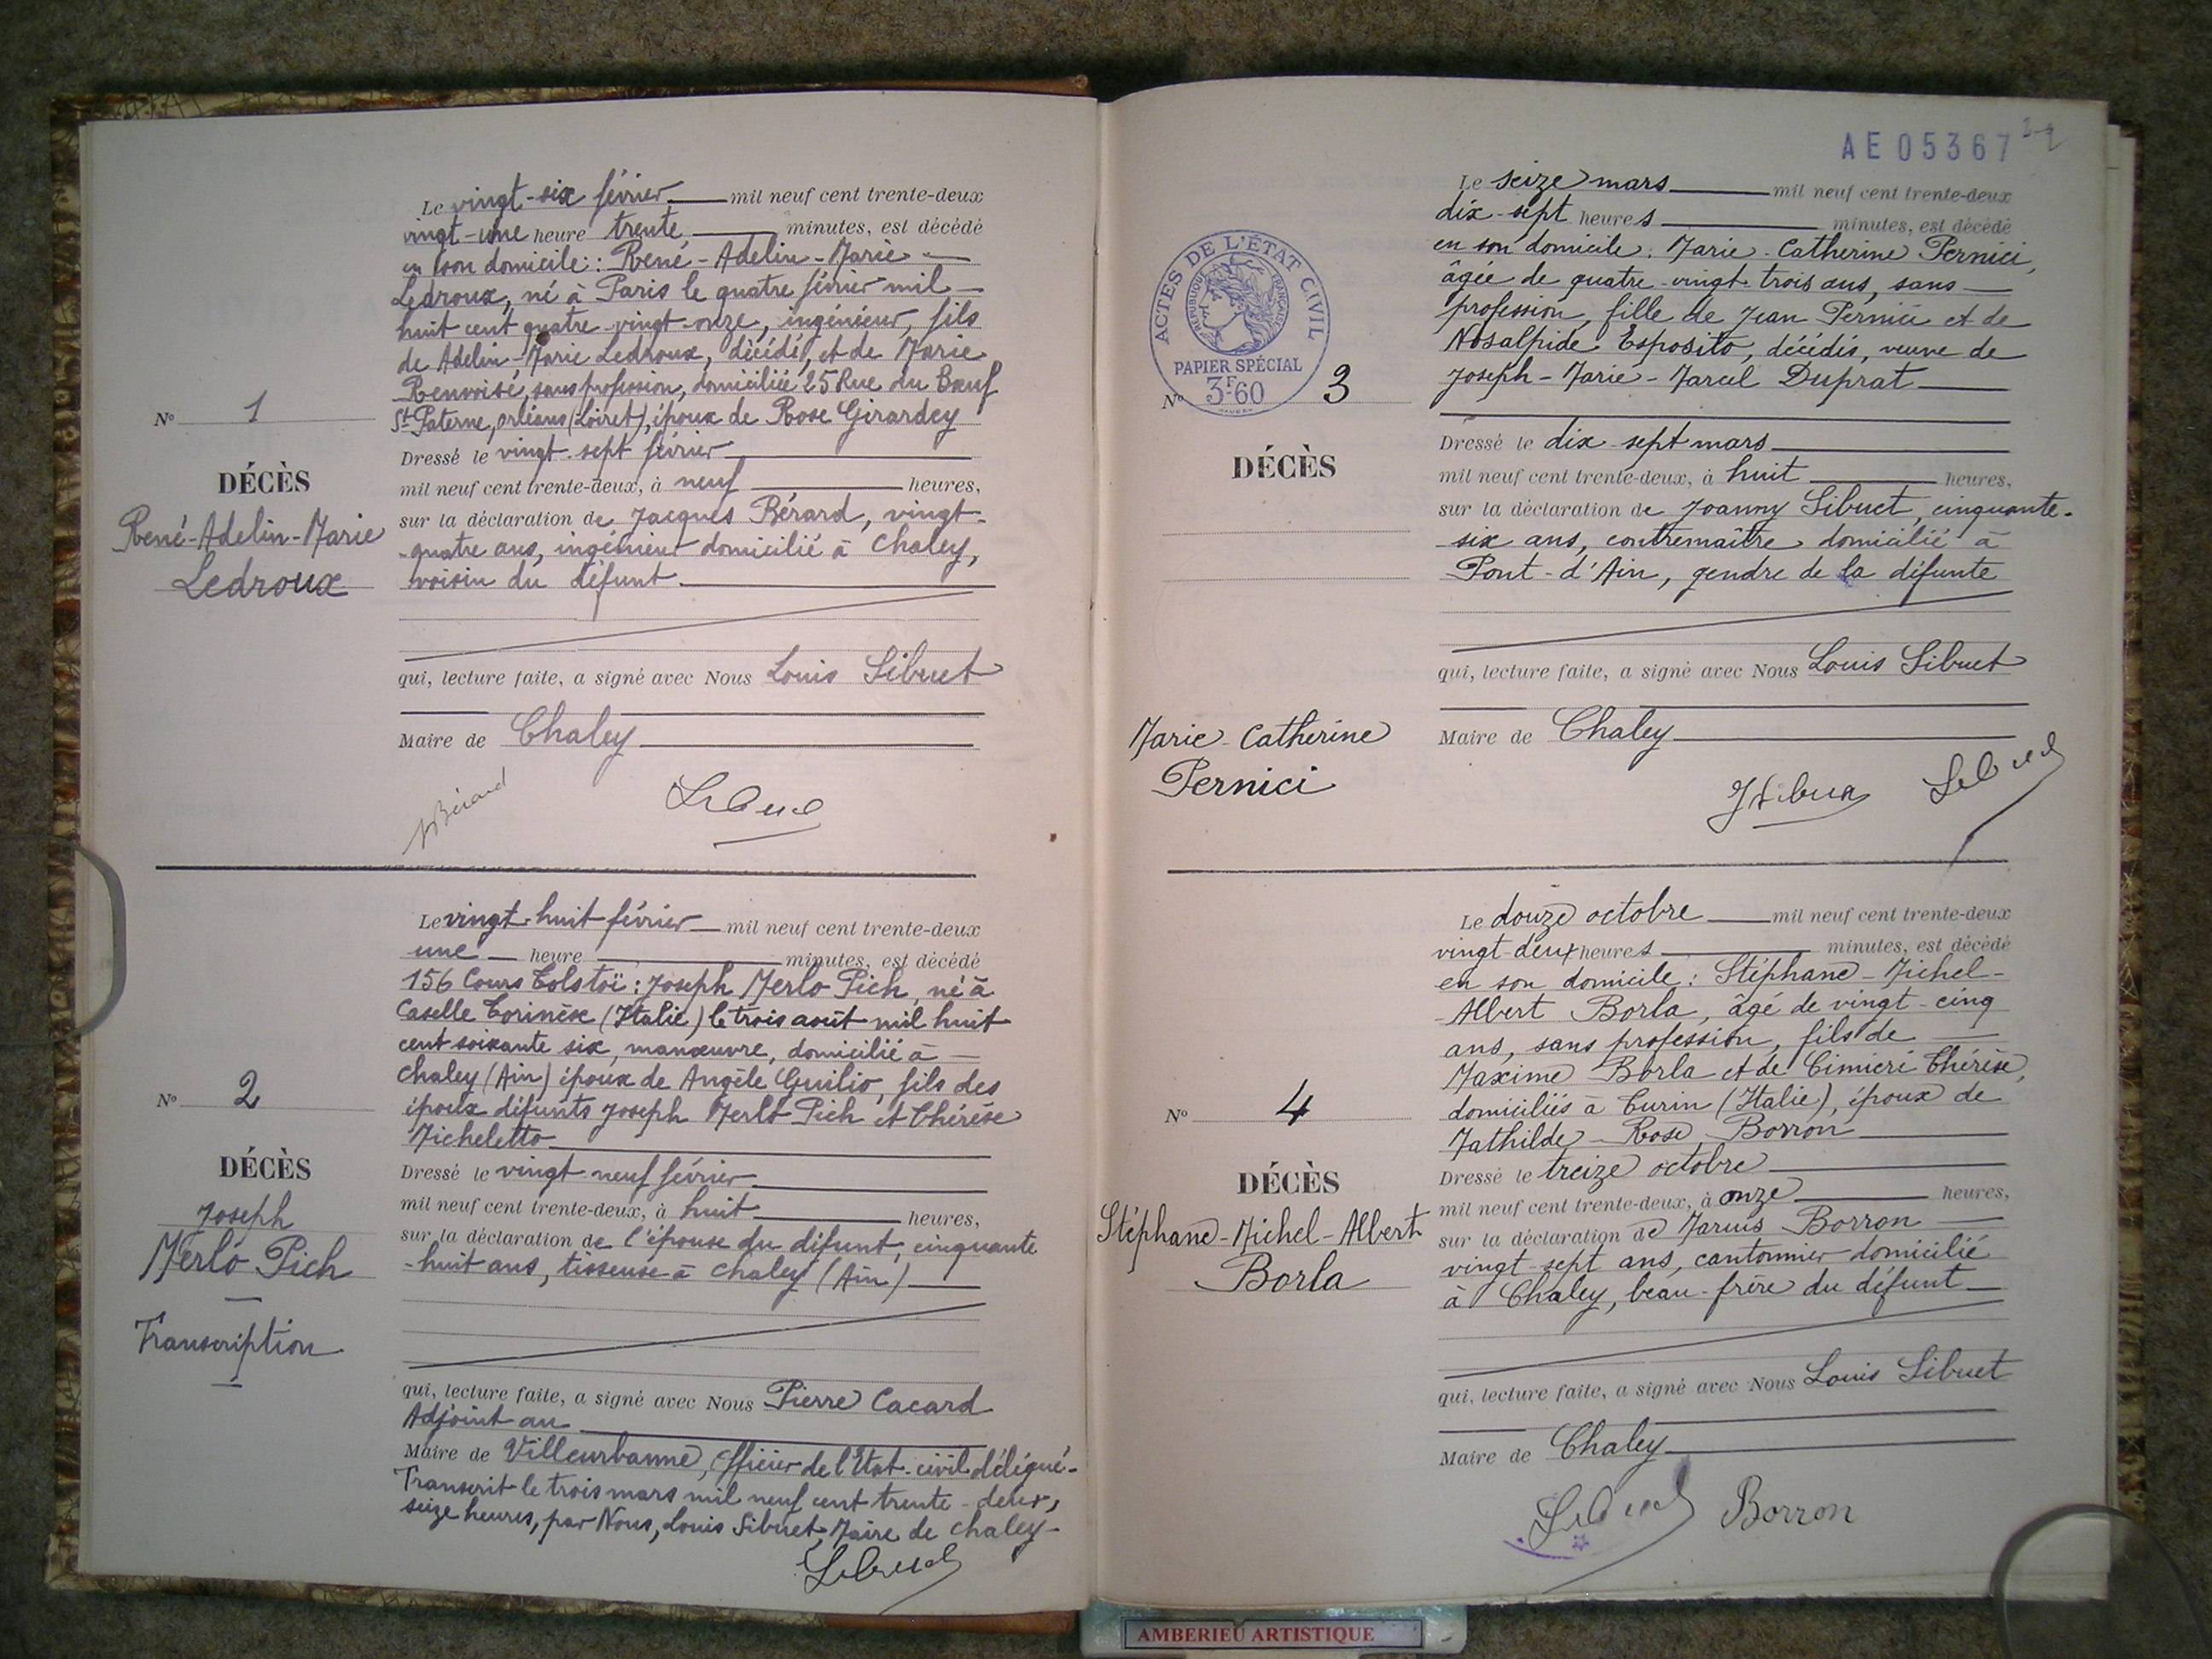 N° 1
DÉCÈS
René-Adelin-Marie
Ledroux
Le vingt-six février mil neuf cent trente-deux
vingt-une heure trente minutes, est décédé
en son domicile : René-Adelin-Marie
Ledroux, né à Paris le quatre février mil
huit cent quatre-vingt-onze, ingénieur, fils
de Adelin-Marie Ledroux, décédé, et de Marie
sans profession, domiciliée 25 Rue du Bœuf
St Paterne, orléans (Loiret), époux de Rose Girardey
Dressé le vingt-sept février
mil neuf cent trente-deux, à neuf heures,
sur la déclaration de Jacques Bérard, vingt-
-quatre ans, ingénieur domicilié à Chaley,
voisin du défunt
qui, lecture faite, a signé avec Nous Louis Sibuet
Maire de Chaley
JBérard Sibuet
N° 2
DÉCÈS
Joseph
Merlo Pich
Transcription
Le vingt-huit février mil neuf cent trente-deux
une heure minutes, est décédé
156 Cours Tolstoï : Joseph Merlo Pich, né à
Caselle Torinèse (Italie) le trois août mil huit
cent soixante six, manœuvre, domicilié à
Chaley (Ain) époux de Angèle Guilio, fils des
époux défunts Joseph Merlo Pich et Thérèse
Micheletto
Dressé le vingt-neuf février
mil neuf cent trente-deux, à huit heures,
sur la déclaration de l'épouse du défunt, cinquante
-huit ans, tisseuse à Chaley (Ain)
qui, lecture faite, a signé avec Nous Pierre Cacard
Adjoint au
Maire de Villeurbanne, Officier de l'Etat-civil délégué-
Transcrit le trois mars mil neuf cent trente-deux,
seize heures, par Nous, Louis Sibuet, Maire de Chaley-
Sibuet
AE 05367
ACTES DE L'ÉTAT CIVIL
RÉPUBLIQUE FRANÇAISE
PAPIER SPÉCIAL
3F60
N° 3
DÉCÈS
Marie-Catherine
Pernici
Le seize mars mil neuf cent trente-deux
dix-sept heures minutes, est décédé
en son domicile : Marie-Catherine Pernici,
âgée de quatre-vingt-trois ans, sans
profession, fille de Jean Pernici et de
Nosalpide Esposito, décédés, veuve de
Joseph-Marie-Marcel Duprat
Dressé le dix-sept mars
mil neuf cent trente-deux, à huit heures,
sur la déclaration de Joanny Sibuet, cinquante-
six ans, contremaître domicilié à
Pont-d'Ain, gendre de la défunte
qui, lecture faite, a signé avec Nous Louis Sibuet
Maire de Chaley
JSibuet Sibuet
N° 4
DÉCÈS
Stéphane-Michel-Albert
Borla
Le douze octobre mil neuf cent trente-deux
vingt-deux heures minutes, est décédé
en son domicile : Stéphane-Michel-
-Albert Borla, âgé de vingt-cinq
ans, sans profession, fils de
Maxime Borla et de Cimieri Thérèse,
domiciliés à Turin (Italie), époux de
Mathilde-Rose Borron
Dressé le treize octobre
mil neuf cent trente-deux, à onze heures,
sur la déclaration de Marius Borron
vingt-sept ans, cantonnier domicilié
à Chaley, beau-frère du défunt
qui, lecture faite, a signé avec Nous Louis Sibuet
Maire de Chaley
Sibuet Borron
AMBERIEU ARTISTIQUE